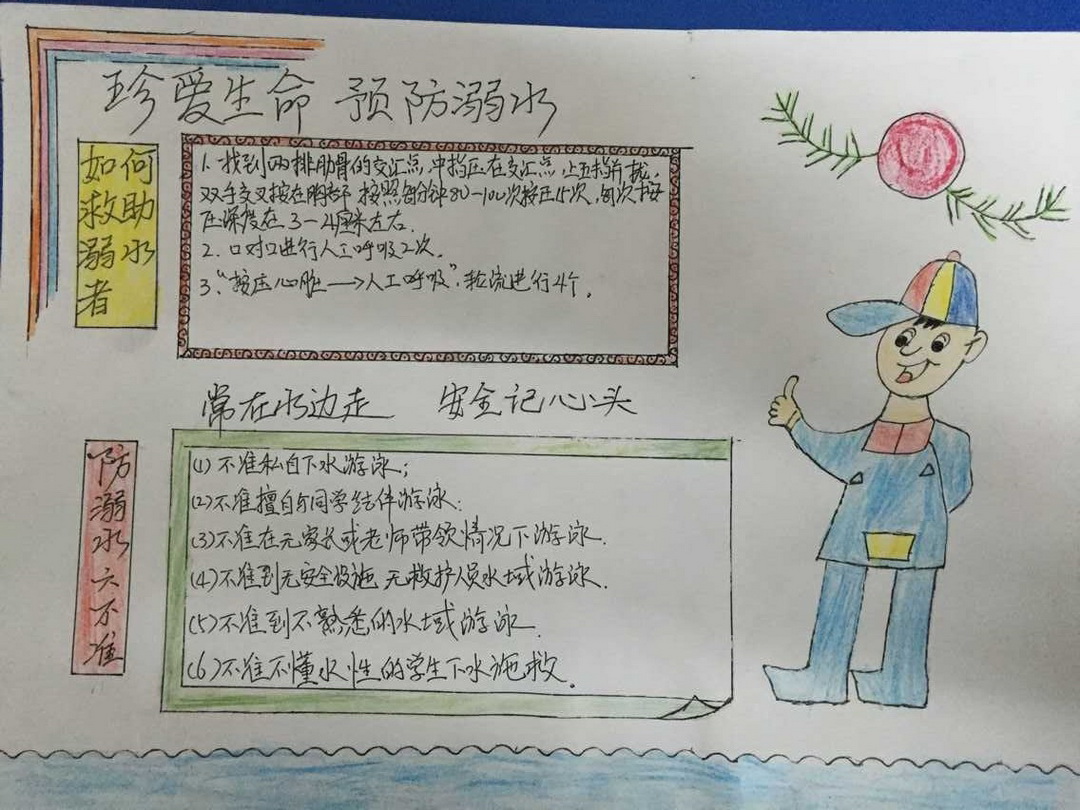 珍爱生命 预防溺水
如何
救助
溺水
者
1. 找到两排肋骨的交汇点,中指压在交汇点,上五指并拢,
双手交叉按在胸部 按照每分钟80-100次按压15次,每次按
压深度在3-4厘米左右.
2. 口对口进行人工呼吸2次.
3. "按压心脏→人工呼吸",轮流进行4个.
常在水边走 安全记心头
防溺水六不准
(1)不准私自下水游泳;
(2)不准擅自与同学结伴游泳;
(3)不准在无家长或老师带领情况下游泳.
(4)不准到无安全设施 无救护人员水域游泳.
(5)不准到不熟悉的水域游泳.
(6)不准不懂水性的学生下水施救.